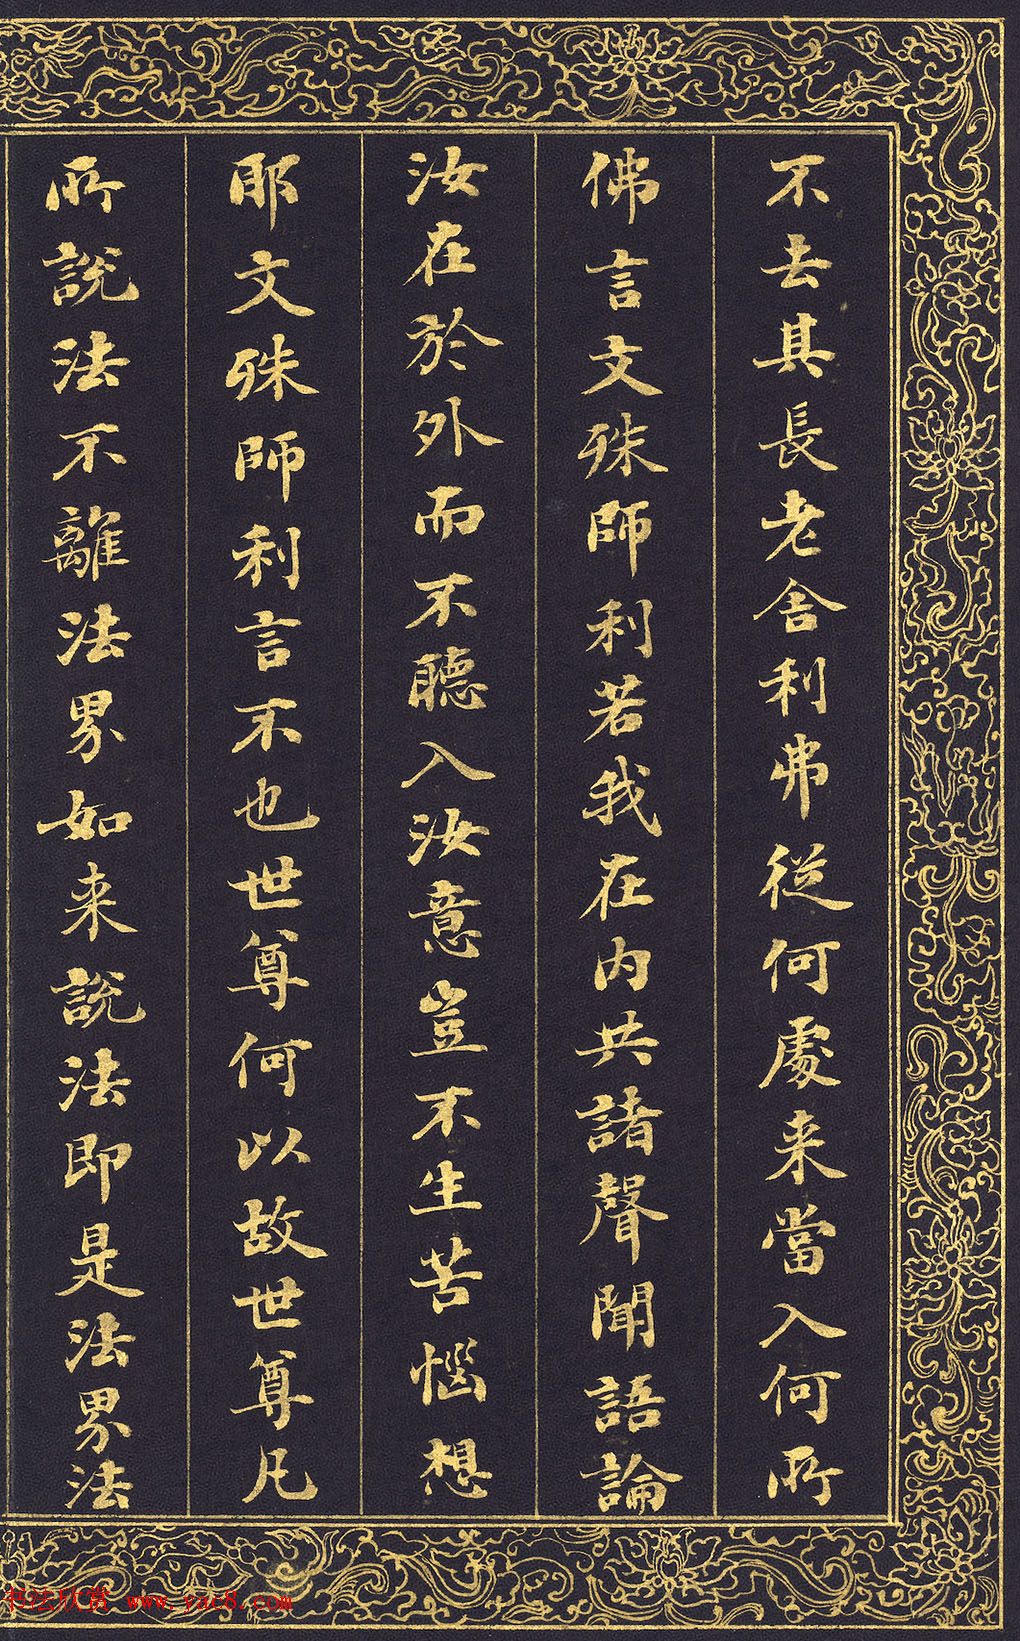 不去其長老舍利弗從何處来當入何所
佛言文殊師利若我在内共諸聲聞語論
汝在於外而不聽入汝意豈不生苦惱想
耶文殊師利言不也世尊何以故世尊凡
所說法不離法界如来說法即是法界法
书法欣赏 www.yac8.com